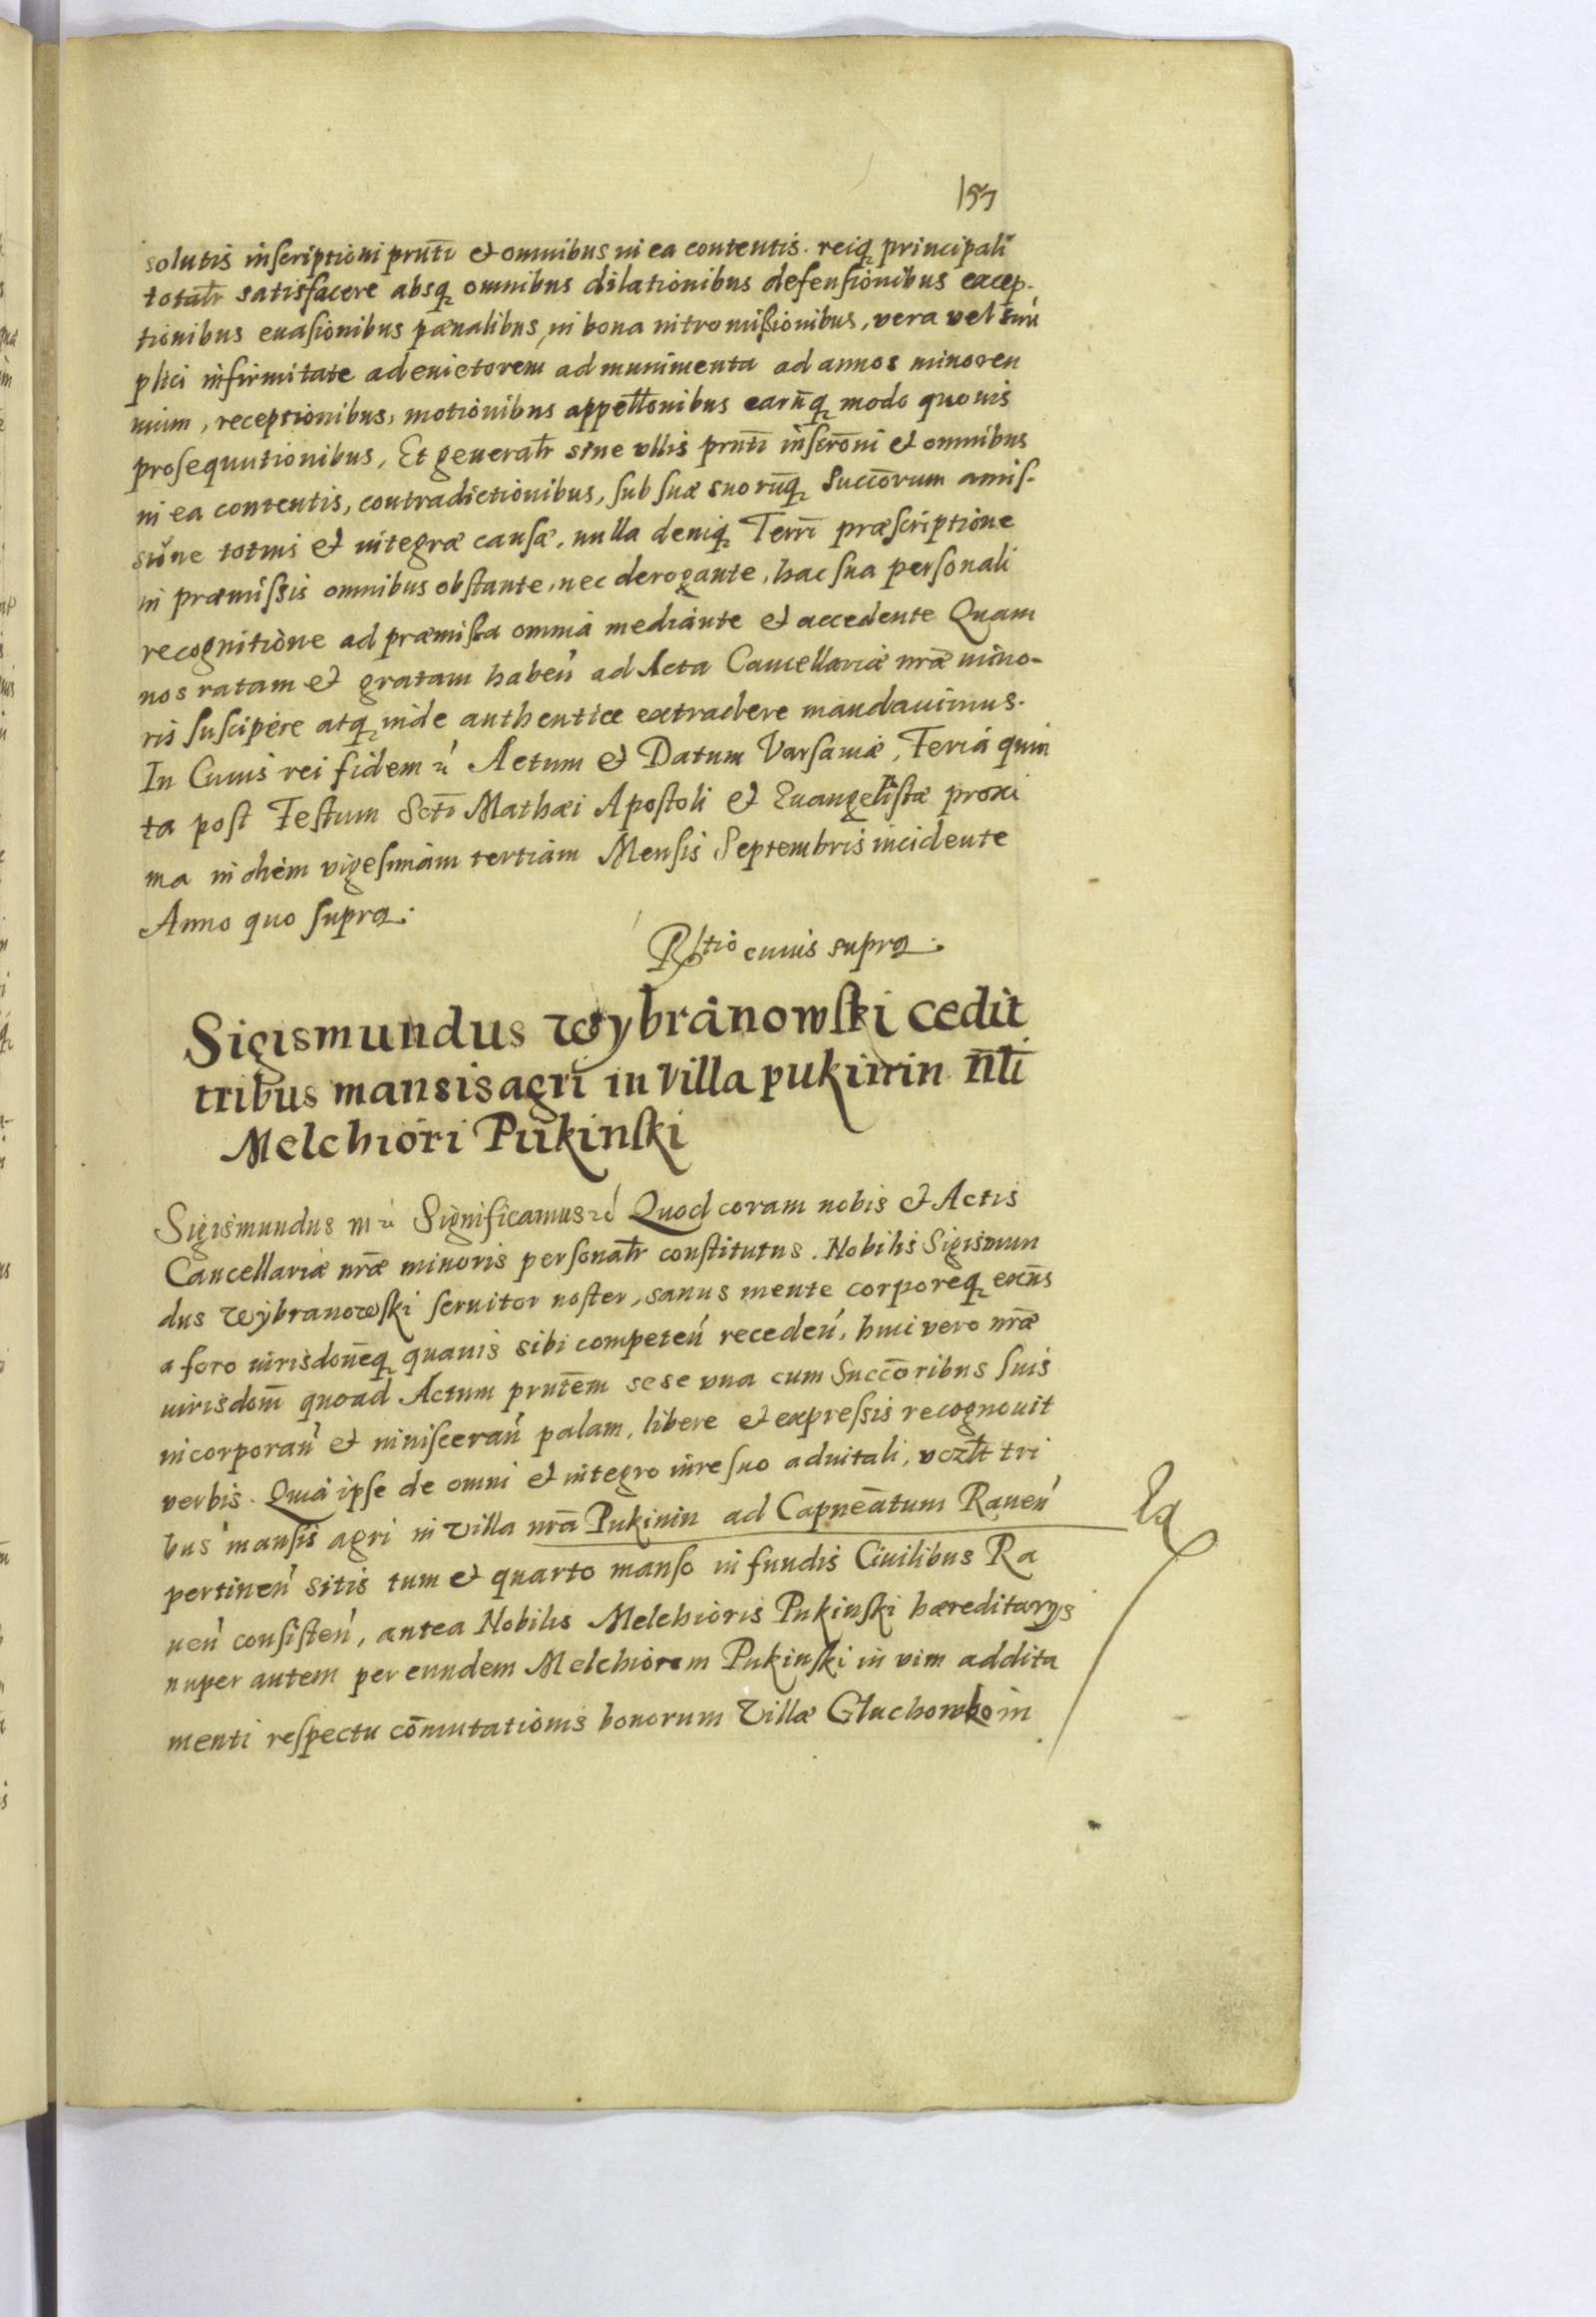 157
solutis inscriptioni prnti et omnibus in ea contentis. reiq principali
totalr satisfacere absq omnibus dilationibus defensionibus excep-
tionibus euasionibus pænalibus, in bona intromissionibus, vera vel sim
plici infirmitate ad euictorem ad munimenta ad annos minoren
nium, receptionibus, motionibus appellonibus earūq modo quouis
prosequutionibus, Et generalr sine vllis prnti inscrōni et omnibus
in ea contentis, contradictionibus, sub suæ suorūq Succōrum amis-
sione totius et integræ causæ, nulla deniq Terrī præscriptione
in præmissis omnibus obstante, nec derogante, hac sua personali
recognitione ad præmissa omnia mediante et accedente Quam
nos ratam et gratam haben ad Acta Cancellariæ nræ mino-
ris suscipere atq inde authentice extradere mandauimus.
In Cuius rei fidem Actum et Datum Varsauiæ, Feria quin
ta post Festum Scti Mathæi Apostoli et Euangelistæ proxi
ma in diem vigesimam tertiam Mensis Septembris incidente
Anno quo supra.
Rltio cuius supra.
Sigismundus Wybranowski cedit
tribus mansis agri in Villa pukinin nli
Melchiori Pukinski
Sigismundus Significamus Quod coram nobis et Actis
Cancellariæ nræ minoris personalr constitutus. Nobilis Sigismun
dus Wybranowski seruitor noster, sanus mente corporeq exns
a foro iurisdoneq quauis sibi competen receden, huic vero nræ
iurisdom quoad Actum prntem sese vna cum Succōribus suis
incorporan et inisceran palam, libere et expressis recognouit
verbis. Quia ipse de omni et integro iure suo aduitali, vczlt tri
bus mansis agri in villa nrā Pukinin ad Capneātum Rauen
pertinen sitis tum et quarto manso in fundis Ciuilibus Ra
uen consisten, antea Nobilis Melchioris Pukinski hæreditarijs
nuper autem per eundem Melchiorem Pukinski in vim addita
menti respectu cōmutationis bonorum Villæ Gluchowko in